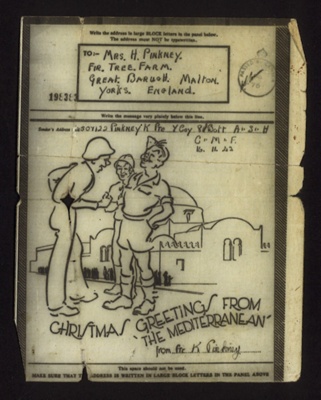 Write the address in large BLOCK letters in the panel below.
The address must NOT be typewritten.
TO:-
MRS. H. PINKNEY.
FIR TREE FARM.
GREAT BARUGH MALTON.
YORKS. ENGLAND.
Write the message very plainly below this line.
Sender's Address
Pinkney K Pte Y Coy
C.M.F.
CHRISTMAS GREETINGS FROM
'THE MEDITERRANEAN'
from Pte K Pinkney
This space should not be used.
MAKE SURE THAT THE ADDRESS IS WRITTEN IN LARGE BLOCK LETTERS IN THE PANEL ABOVE